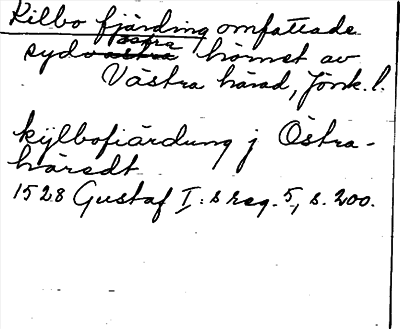 Kilbo fjärding omfattade
sydöstra hörnet av
Västra härad, Jönk. l.
kÿlbofiärdung j Östra-
häredt
1528 Gustaf I:s reg. 5, s. 200.